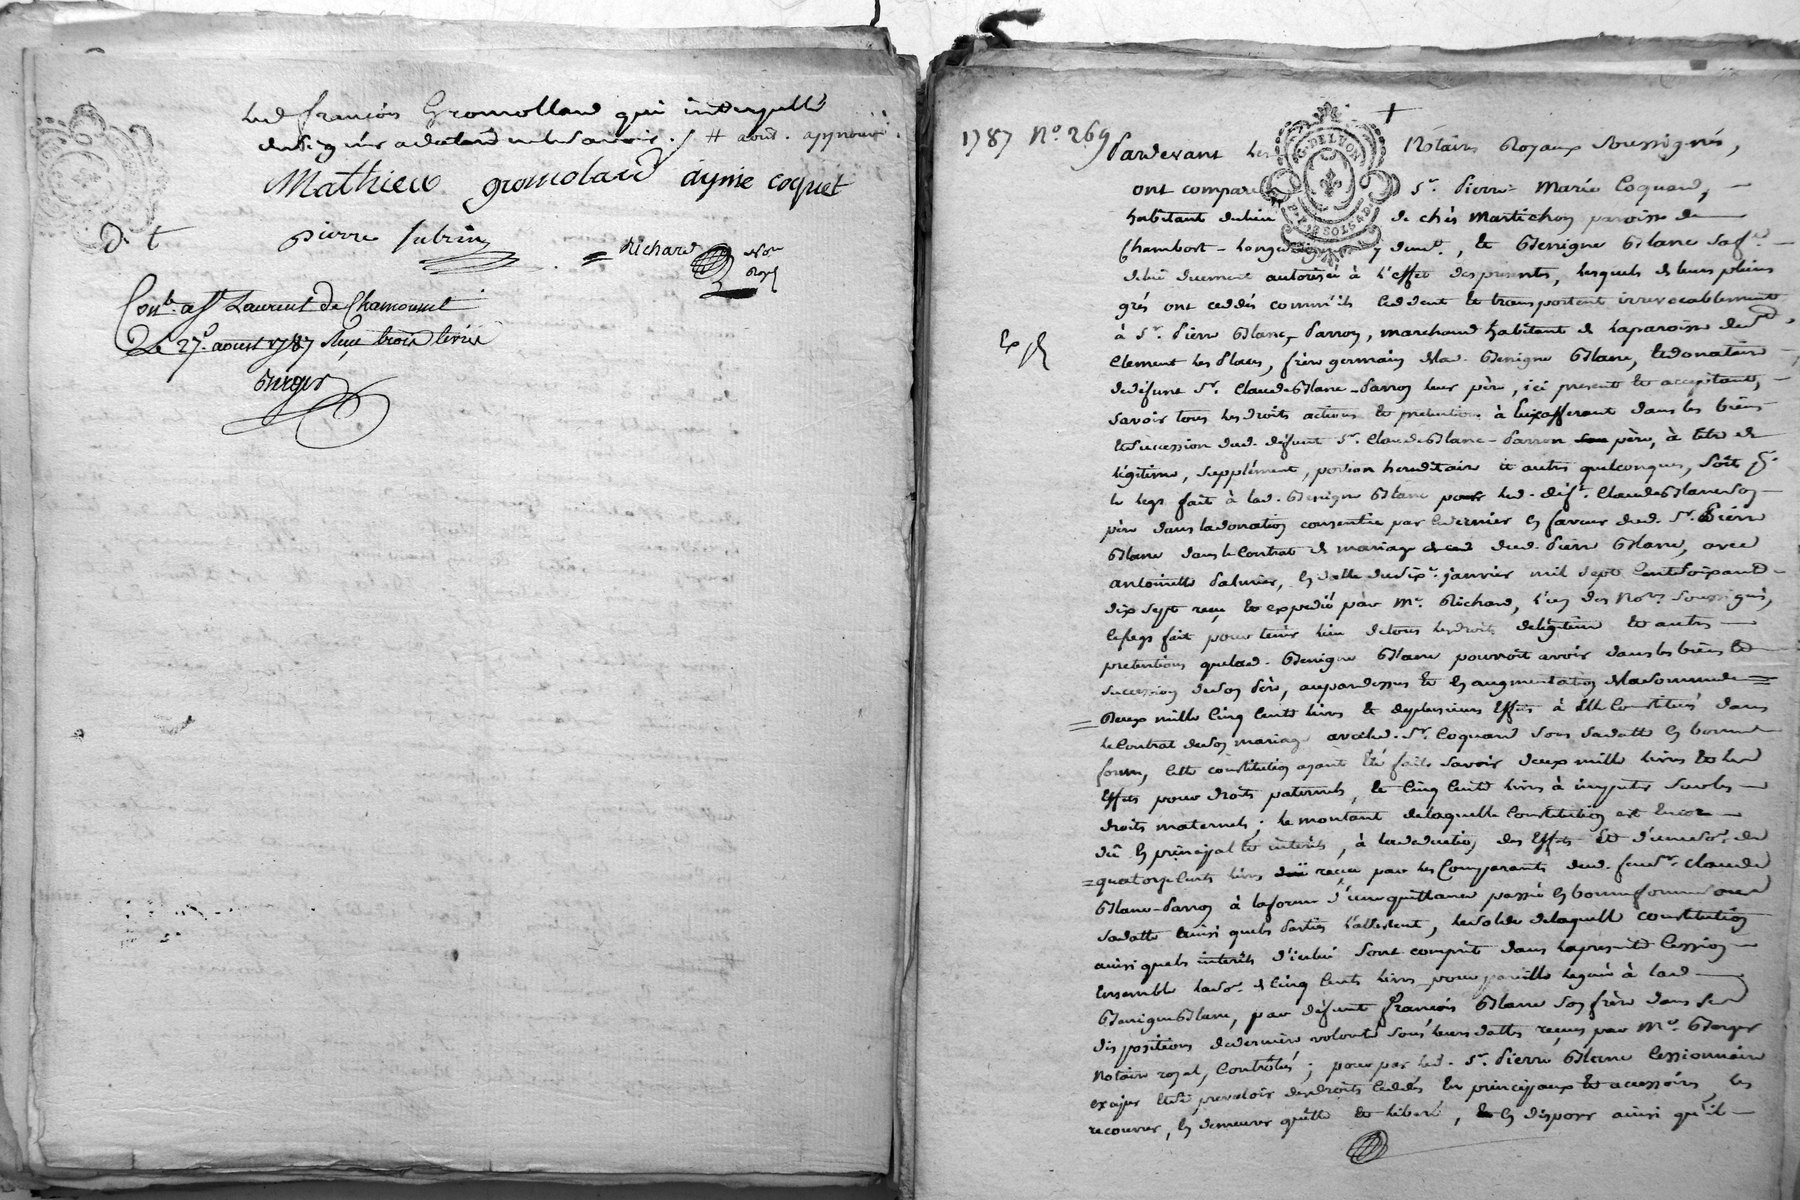 led françois Gromolland qui interpellé
de signer a declaré ne le savoir ./. # aoust. approuvé.
Mathieu gromolard ayme coquet
D. t
pierre subrin
= Richard No.re Royal
Con.lé à S.t Laurent de Chamousset
Le 27. aoust 1787 Reçu trois livres
Berger
+
1787 N.o 269
G. DE LYON
P. P. 12 SOLS 4 D.
Pardevant les Notaires Royaux soussignés,
ont comparu S.r Pierre Marie Coquard,
habitant du lieu de chés Martichon paroisse de
Chambost-Longessaigne y dem.t, et Benigne Blanc sa f.e
de lui duement autorisée à l'effet des presentes, lesquels de leurs pleins
grés ont ceddés comm'ils ceddent et transportent irrevocablement
à S.r Pierre Blanc-Parron, marchand habitant de la paroisse de S.t
Ex p.
Clement les Places, frère germain de lad. Benigne Blanc, et donataire
de défunt S.r Claude Blanc-Parron leur père, ici present et acceptant,
savoir tous les droits actions et pretentions à lui afferant dans les biens
et succession dud. défunt S.r Claude Blanc-Parron son père, à titre de
légitime, supplément, portion hereditaire et autres quelconques, soit p.r
le legs fait à lad. Benigne Blanc par led. déf.t Claude Blanc son
père dans la donation consentie par ce dernier en faveur dud. S.r Pierre
Blanc dans le Contrat de mariage dud. Pierre Blanc, avec
antoinette Palmier, en datte du six.e janvier mil sept cent soixante
dix sept reçu et expedié par M.e Richard, l'un des No.res soussignés,
ce legs fait pour tenir lieu de tous les droits de légitime et autres
pretentions que lad. Benigne Blanc pourroit avoir dans les biens et
succession de son père, aupardessus et en augmentation de la somme de
Deux mille cinq cents livres et de plusieurs Effets à Elle Constitués dans
le Contrat de son mariage avec led. S.r Coquard sous sa datte en bonne
forme, cette constitution ayant été faite savoir deux mille livres et les
Effets pour droits paternels, et cinq cents livres à imputer sur les
droits maternels; le montant de laquelle Constitution est encore
dû en principal et interêts, à la deduction des Effets et d'une so.e de
quatorze cents livres reçue par les Comparants dud. feu S.r Claude
Blanc-Parron à la forme d'une quittance passée en bonne forme sous
sa datte ainsi que les parties l'attestent, le solde de laquelle constitution
ainsi que les interêts d'icelui sont compris dans la presente Cession
Ensemble la so.e de Cinq cents livres pour pareille leguée à lad
Benigne Blanc, par défunt françois Blanc son frère dans ses
dispositions de dernière volonté sous leurs dattes, reçues par M.e Berger
Notaire royal, Contrôlés; pour par led. S.r Pierre Blanc Cessionnaire
exiger et se prevaloir des droits ceddés en principaux et accessoires, les
recouvrer, en demeurer quitte et liberé, et en disposer ainsi qu'il